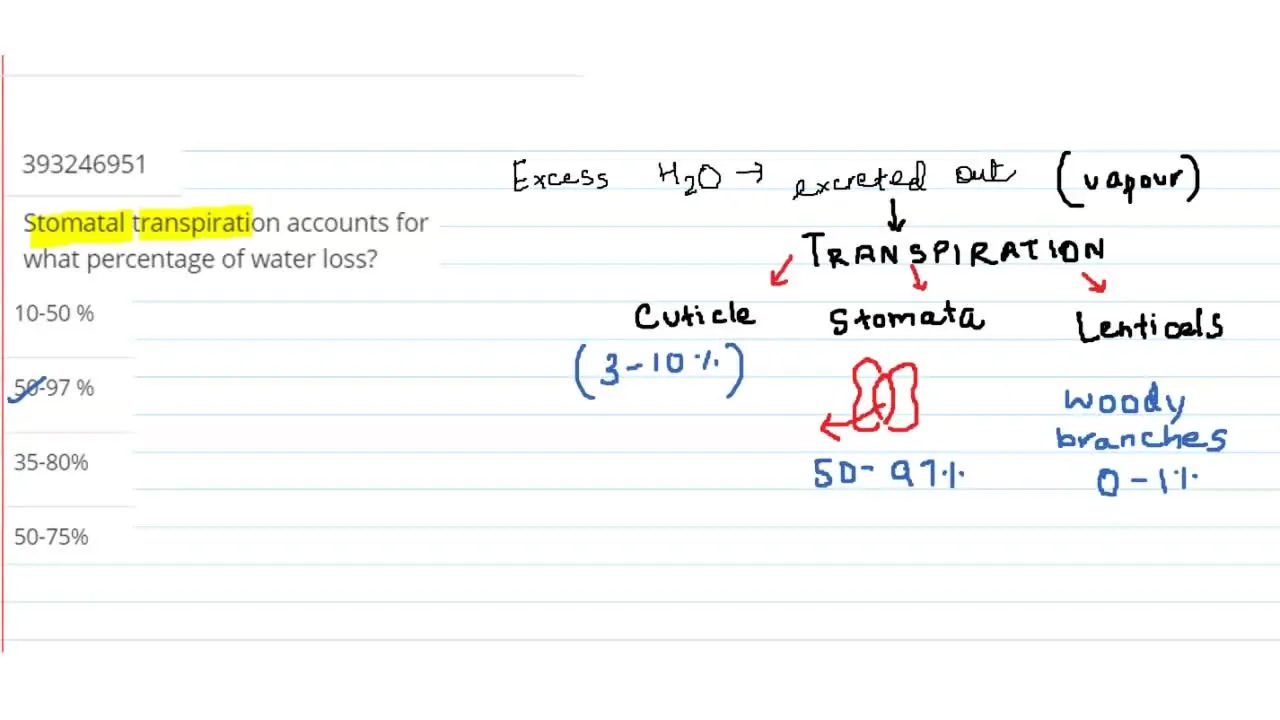 393246951
Stomatal transpiration accounts for
what percentage of water loss?
10-50 %
50-97 %
35-80%
50-75%
Excess H2O → excreted out (vapour)
↓
TRANSPIRATION
Cuticle Stomata Lenticels
(3-10%)
woody
branches
50-97% 0-1%